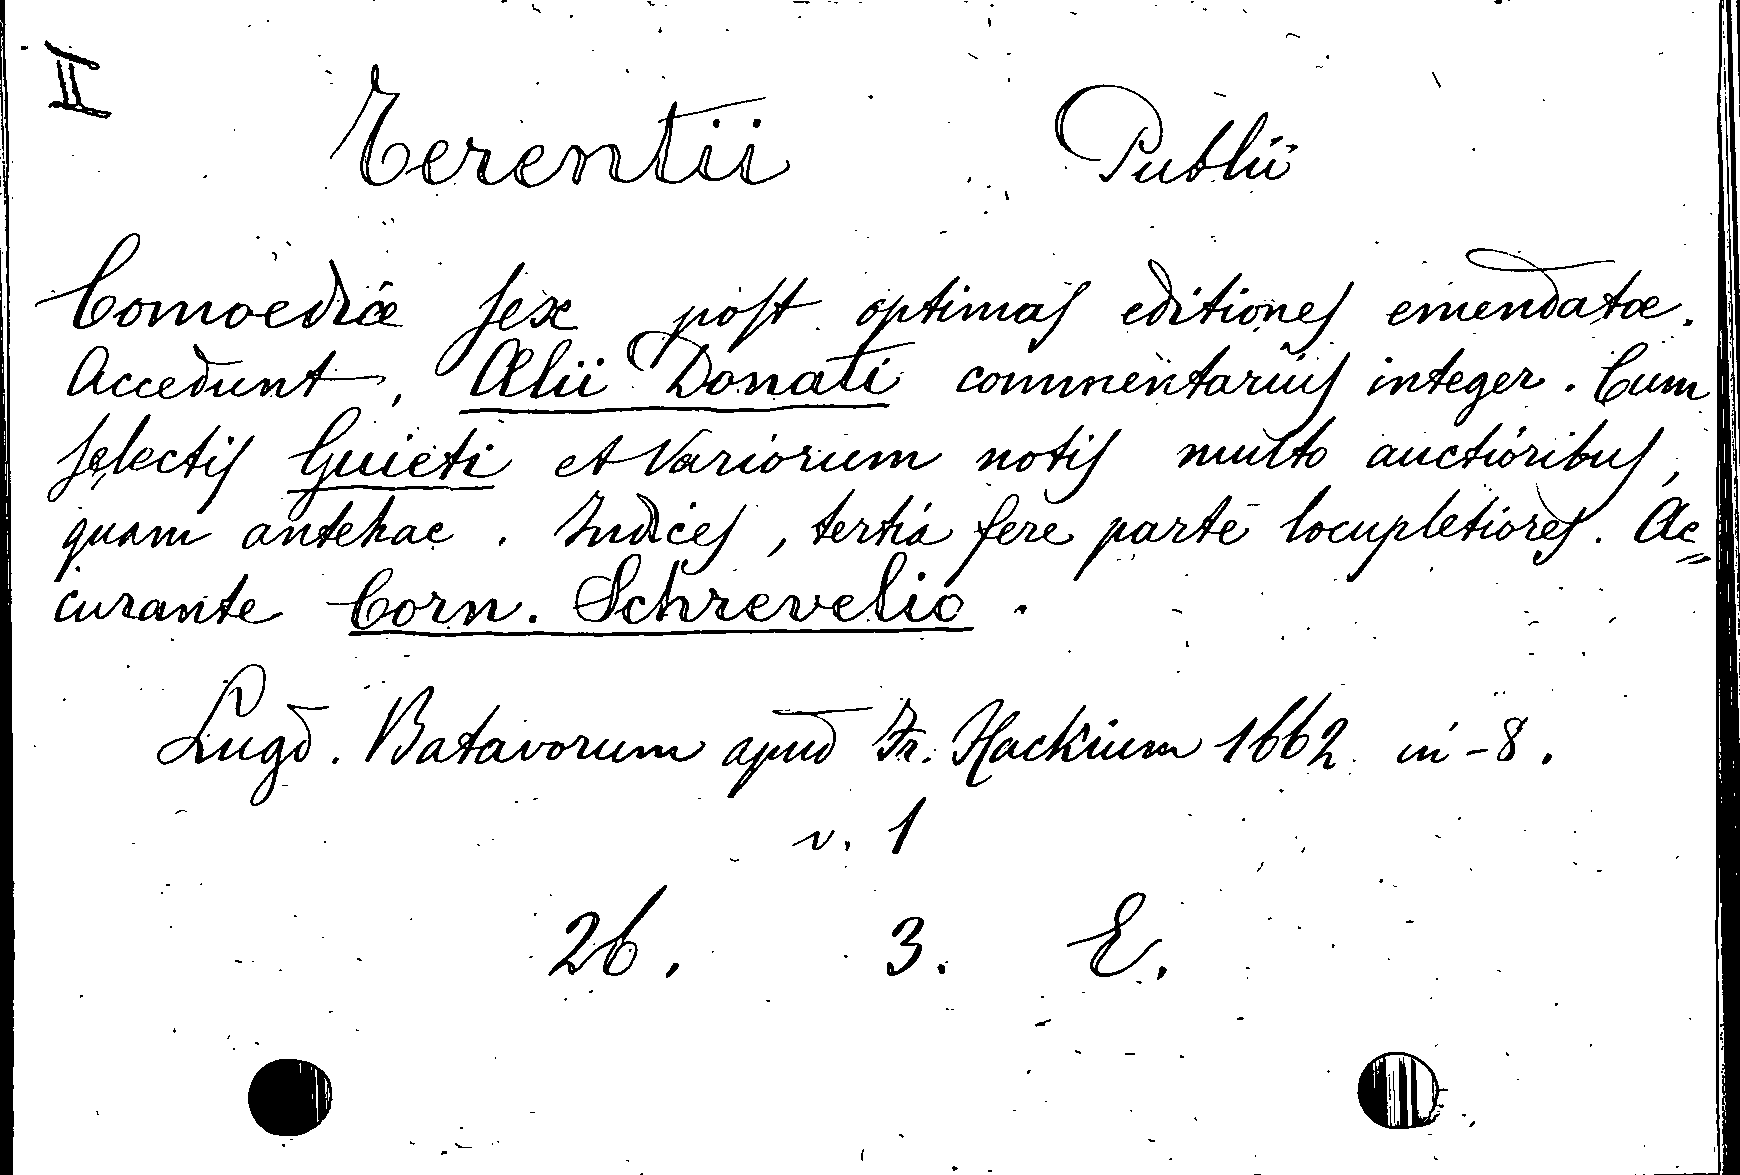 II
Terentii Publii
Comoediæ sex post optimas editiones emendatæ.
Accedunt, Ælii Donati commentarius integer. Cum
selectis Guieti et Variorum notis multo auctioribus,
quam antehac. Indices, tertia fere parte locupletiores. Ac=
curante Corn. Schrevelio.
Lugd. Batavorum apud Fr. Hackium 1662 in-8.
v. 1
26. 3. E.